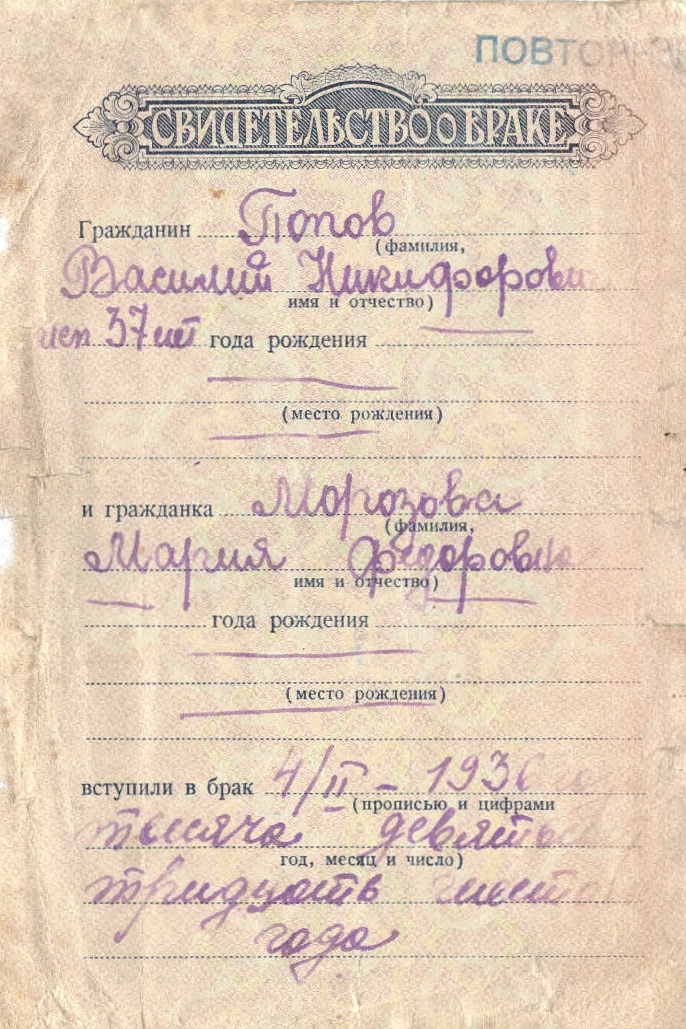 ПОВТОРНОЕ
СВИДЕТЕЛЬСТВО О БРАКЕ
Гражданин Попов
(фамилия,
Василий Никифорович
имя и отчество)
37 лет года рождения
(место рождения)
и гражданка Морозова
(фамилия,
Мария Федоровна
имя и отчество)
года рождения
(место рождения)
вступили в брак 4/II – 1936
(прописью и цифрами
тысяча девятьсот
год, месяц и число)
тридцать шестого
года